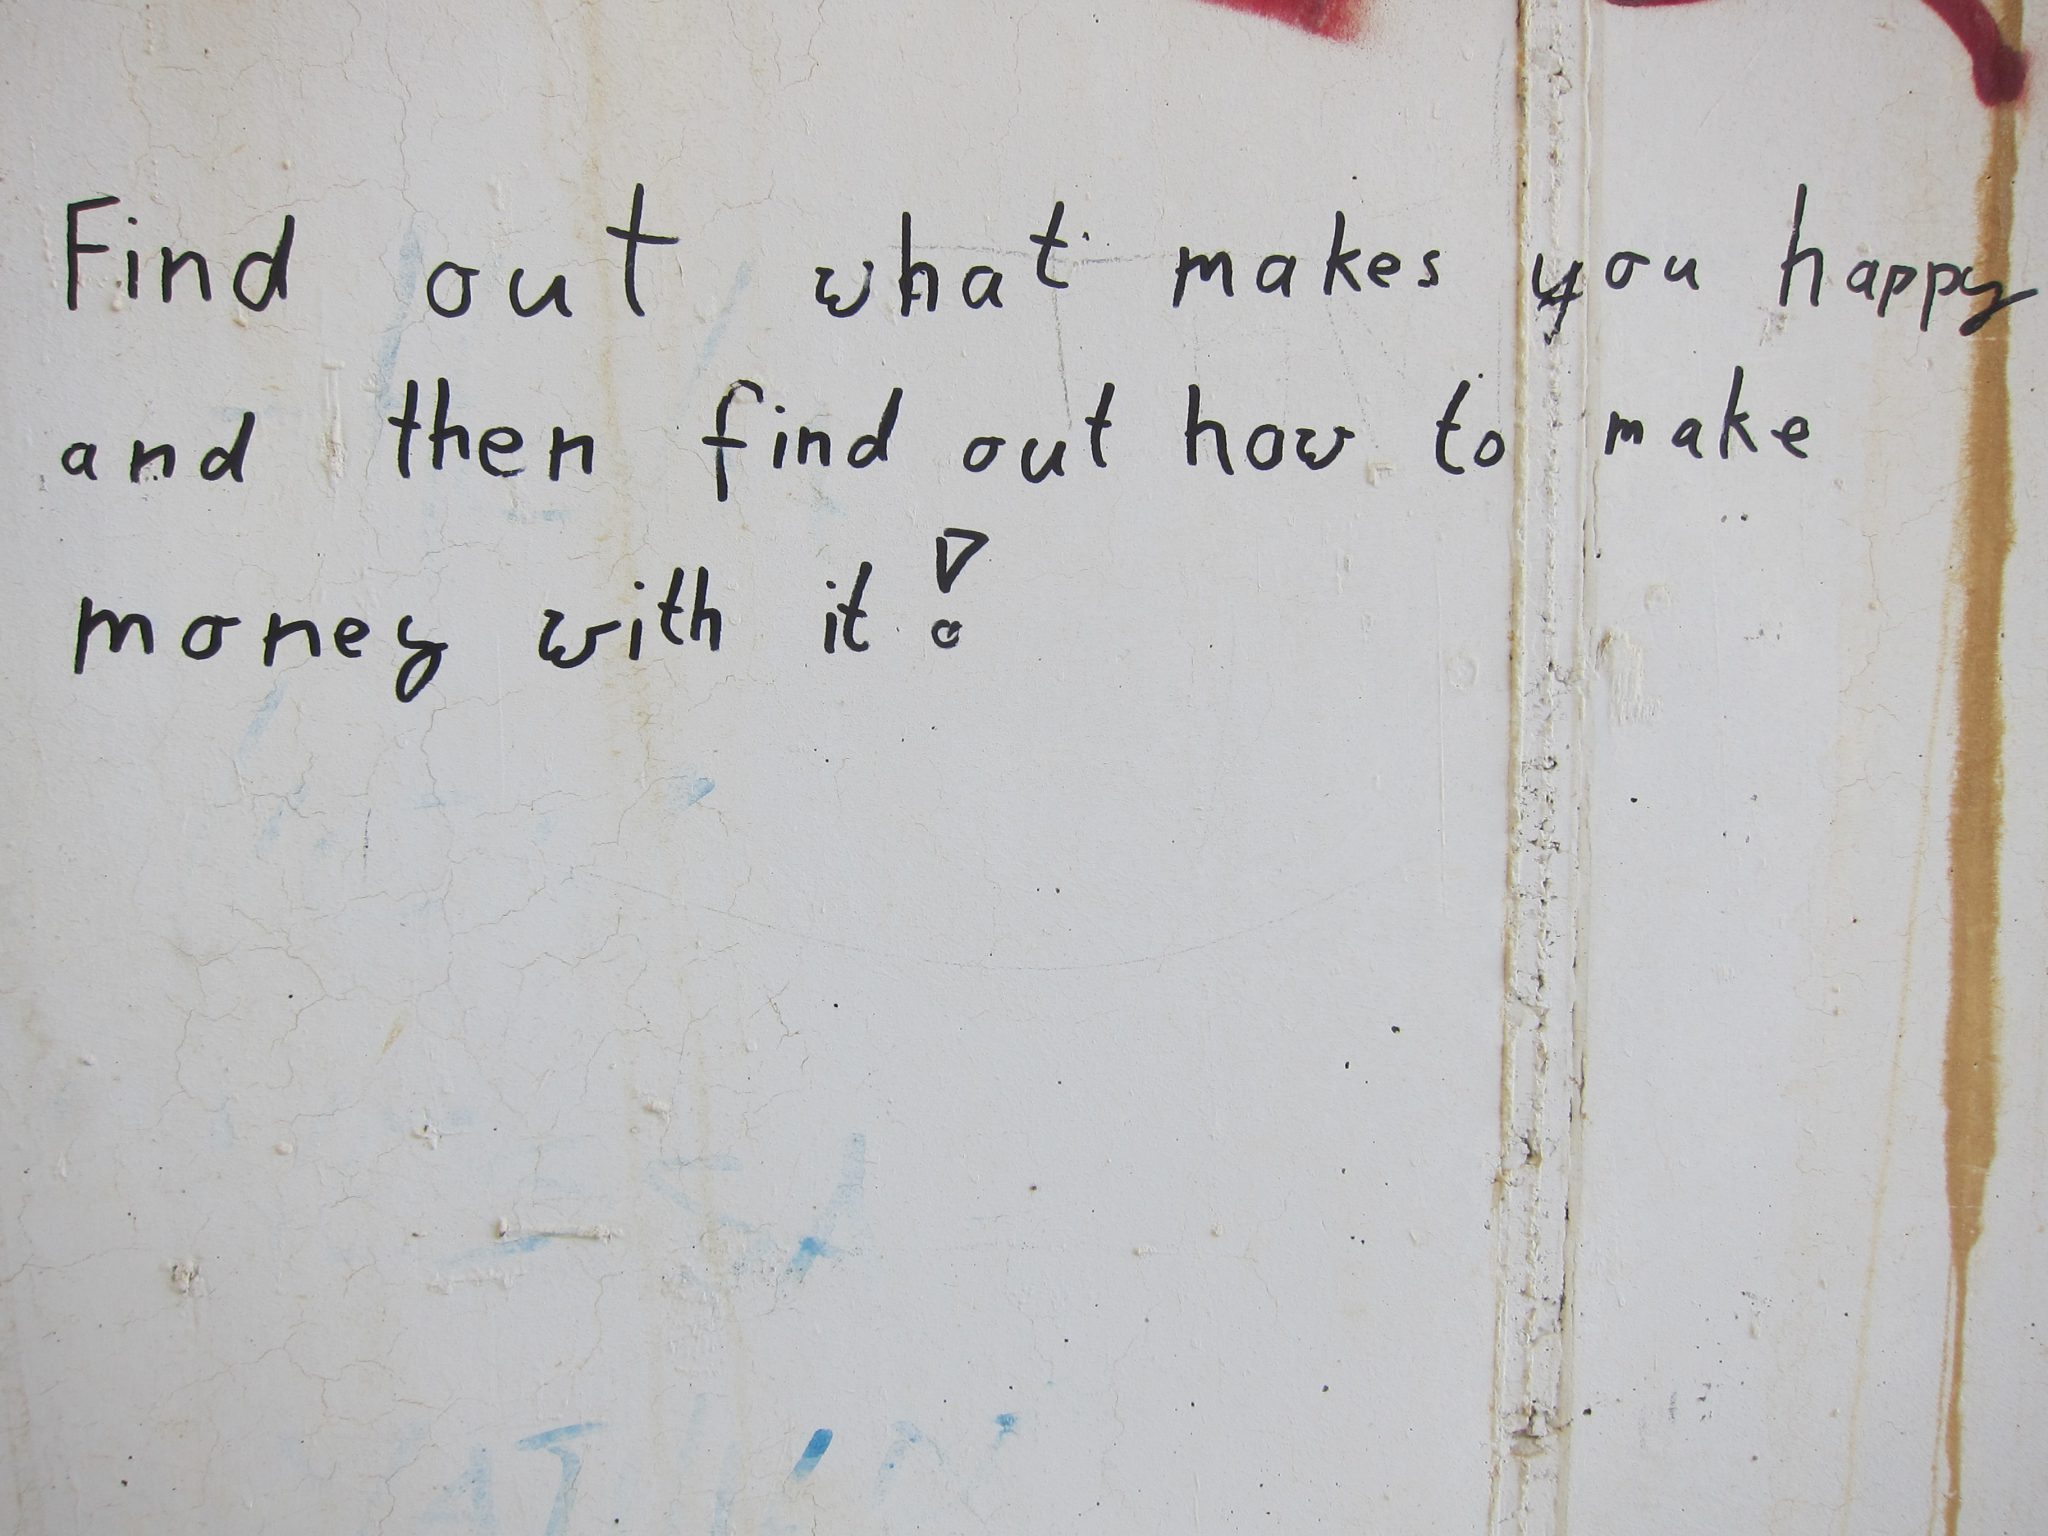 Find out what makes you happy
and then find out how to make
money with it!